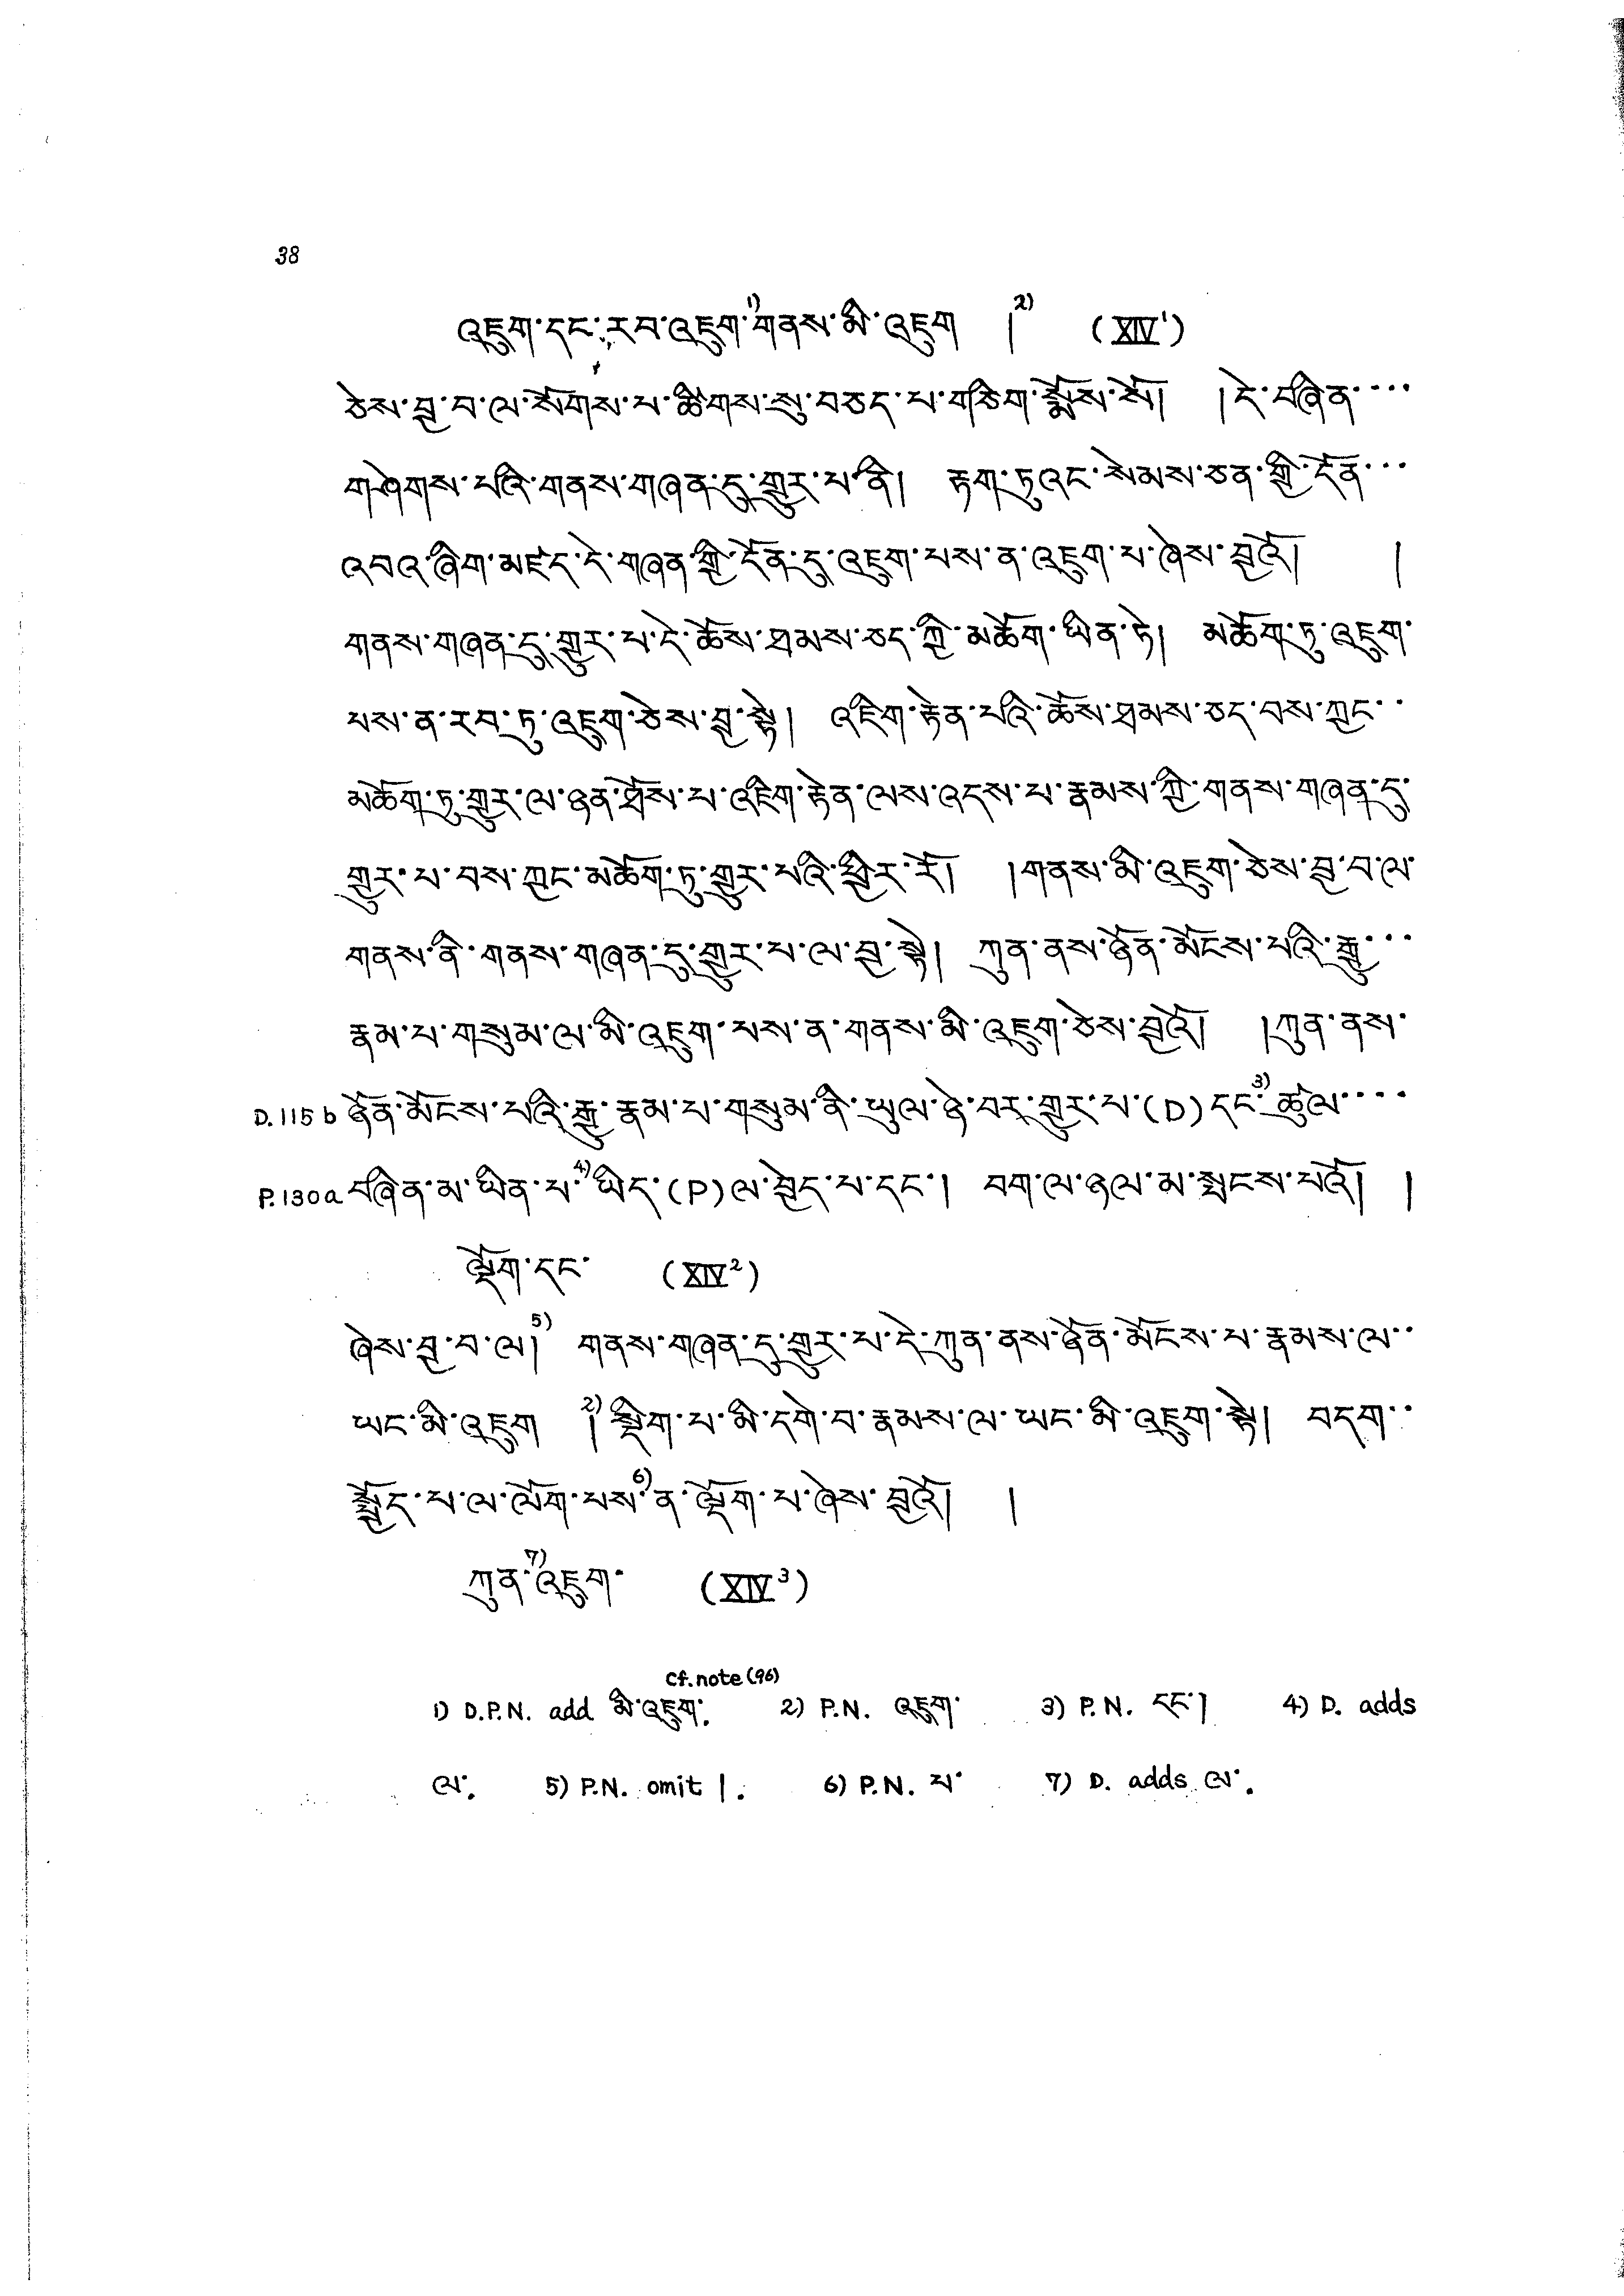 38
འཇུག་དང་རབ་འཇུག་1)གནས་མི་འཇུག །2) (XIV¹)
ཅེས་བྱ་བ་ལ་སོགས་པ་ཚིགས་སུ་བཅད་པ་གཅིག་སྨོས་སོ། །དེ་བཞིན་···
གཤེགས་པའི་གནས་གཞན་དུ་གྱུར་པ་ནི། རྟག་ཏུ་འང་སེམས་ཅན་གྱི་དོན་···
འབའ་ཞིག་མཛད་དེ་གཞན་གྱི་དོན་དུ་འཇུག་པས་ན་འཇུག་པ་ཞེས་བྱའོ། །
གནས་གཞན་དུ་གྱུར་པ་དེ་ཆོས་ཐམས་ཅད་ཀྱི་མཆོག་ཡིན་ཏེ། མཆོག་ཏུ་འཇུག་
པས་ན་རབ་ཏུ་འཇུག་ཅེས་བྱ་སྟེ། འཇིག་རྟེན་པའི་ཆོས་ཐམས་ཅད་བས་ཀྱང་··
མཆོག་ཏུ་གྱུར་ལ་ཉན་ཐོས་པ་འཇིག་རྟེན་ལས་འདས་པ་རྣམས་ཀྱི་གནས་གཞན་དུ་
གྱུར་པ་བས་ཀྱང་མཆོག་ཏུ་གྱུར་པའི་ཕྱིར་རོ། །གནས་མི་འཇུག་ཅེས་བྱ་བ་ལ་
གནས་ནི་གནས་གཞན་དུ་གྱུར་པ་ལ་བྱ་སྟེ། ཀུན་ནས་ཉོན་མོངས་པའི་རྒྱུ་···
རྣམ་པ་གསུམ་ལ་མི་འཇུག་པས་ན་གནས་མི་འཇུག་ཅེས་བྱའོ། །ཀུན་ནས་
D.115b ཉོན་མོངས་པའི་རྒྱུ་རྣམ་པ་གསུམ་ནི་ཡུལ་ཉེ་བར་གྱུར་པ་(D)དང་3)ཚུལ་···
P.130a བཞིན་མ་ཡིན་པ་4)ཡིད་(P)ལ་བྱེད་པ་དང་། བག་ལ་ཉལ་མ་སྤངས་པའོ། །
ལྡོག་དང་ (XIV²)
ཞེས་བྱ་བ་ལ།5) གནས་གཞན་དུ་གྱུར་པ་དེ་ཀུན་ནས་ཉོན་མོངས་པ་རྣམས་ལ་··
ཡང་མི་འཇུག །2)སྡིག་པ་མི་དགེ་བ་རྣམས་ལ་ཡང་མི་འཇུག་སྟེ། བདག་··
སྦྱོད་པ་ལ་ལོག་པས་6)ན་ལྡོག་པ་ཞེས་བྱའོ། །
ཀུན་7)འཇུག་ (XIV³)
cf. note (96)
1) D.P.N. add མི་འཇུག་. 2) P.N. འཇུག་ 3) P.N. དང་། 4) D. adds
ལ་. 5) P.N. omit །. 6) P.N. པ་ 7) D. adds ལ་.